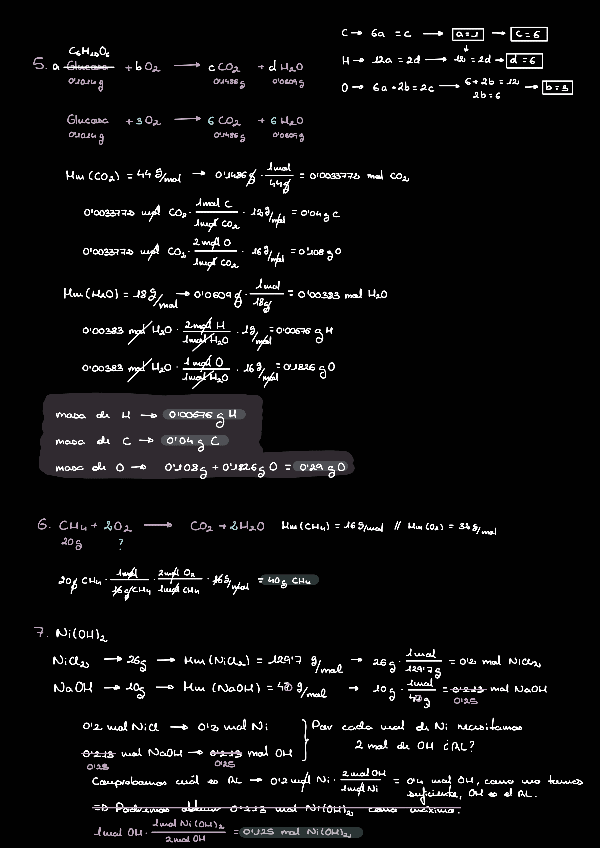 C → 6a = c → a=1 → c=6
H → 12a = 2d → 12=2d → d=6
O → 6a+2b=2c → 6+2b=12 → b=3
2b=6
C₆H₁₂O₆
5. a Glucosa + b O₂ → c CO₂ + d H₂O
0'1014g 0'1486g 0'0609g
Glucosa + 3 O₂ → 6 CO₂ + 6 H₂O
0'1014g 0'1486g 0'0609g
Mm (CO₂) = 44 g/mol → 0'1486g · 1mol/44g = 0'0033772 mol CO₂
0'0033772 mol CO₂ · 1mol C/1mol CO₂ · 12g/mol = 0'04g C
0'0033772 mol CO₂ · 2mol O/1mol CO₂ · 16g/mol = 0'108g O
Mm (H₂O) = 18g/mol → 0'0609g · 1mol/18g = 0'00383 mol H₂O
0'00383 mol H₂O · 2mol H/1mol H₂O · 1g/mol = 0'00676 g H
0'00383 mol H₂O · 1mol O/1mol H₂O · 16g/mol = 0'1826 g O
masa de H → 0'00676 g H
masa de C → 0'04 g C
masa de O → 0'108g + 0'1826g O = 0'29 g O
6. CH₄ + 2O₂ → CO₂ + 2H₂O Mm(CH₄) = 16g/mol // Mm(O₂) = 34g/mol
20g ?
20g CH₄ · 1mol/16g CH₄ · 2mol O₂/1mol CH₄ · 16g/mol = 40g CH₄
7. Ni(OH)₂
NiCl₂ → 26g → Mm (NiCl₂) = 129'7 g/mol → 26g · 1mol/129'7g = 0'2 mol NiCl₂
NaOH → 10g → Mm (NaOH) = 40 g/mol → 10g · 1mol/40g = 0'213 mol NaOH
0'25
0'2 mol NiCl → 0'2 mol Ni } Por cada mol de Ni necesitamos
0'213 mol NaOH → 0'213 mol OH 2 mol de OH ¿RL?
0'25 0'25
Comprobamos cuál es RL → 0'2 mol Ni · 2mol OH/1mol Ni = 0'4 mol OH, como no tenemos
suficiente, OH es el RL.
⇒ Podremos obtener 0'213 mol Ni(OH)₂ como máximo.
1mol OH · 1mol Ni(OH)₂/2mol OH = 0'125 mol Ni(OH)₂